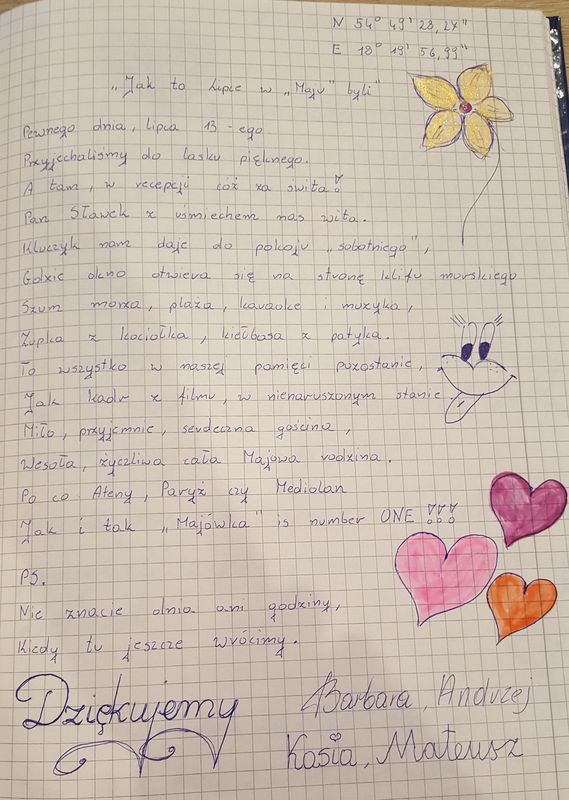 N 54° 49' 28,27"
E 18° 19' 56,99"
„Jak to Lipce w „Maju" byli"
Pewnego dnia, lipca 13-ego
Przyjechaliśmy do lasku pięknego.
A tam, w recepcji cóż za świta!
Pan Sławek z uśmiechem nas wita.
Kluczyk nam daje do pokoju „sobotniego",
Gdzie okno otwiera się na stronę klifu morskiego
Szum morza, plaża, karaoke i muzyka,
Zupka z kociołka, kiełbasa z patyka.
To wszystko w naszej pamięci pozostanie,
Jak kadr z filmu, w nienaruszonym stanie.
Miło, przyjemnie, serdeczna gościna,
Wesoła, życzliwa cała Majowa rodzina.
Po co Ateny, Paryż czy Mediolan
Jak i tak „Majówka" is number ONE !!!
PS.
Nie znacie dnia ani godziny,
Kiedy tu jeszcze wrócimy.
Dziękujemy
Barbara, Andrzej
Kasia, Mateusz